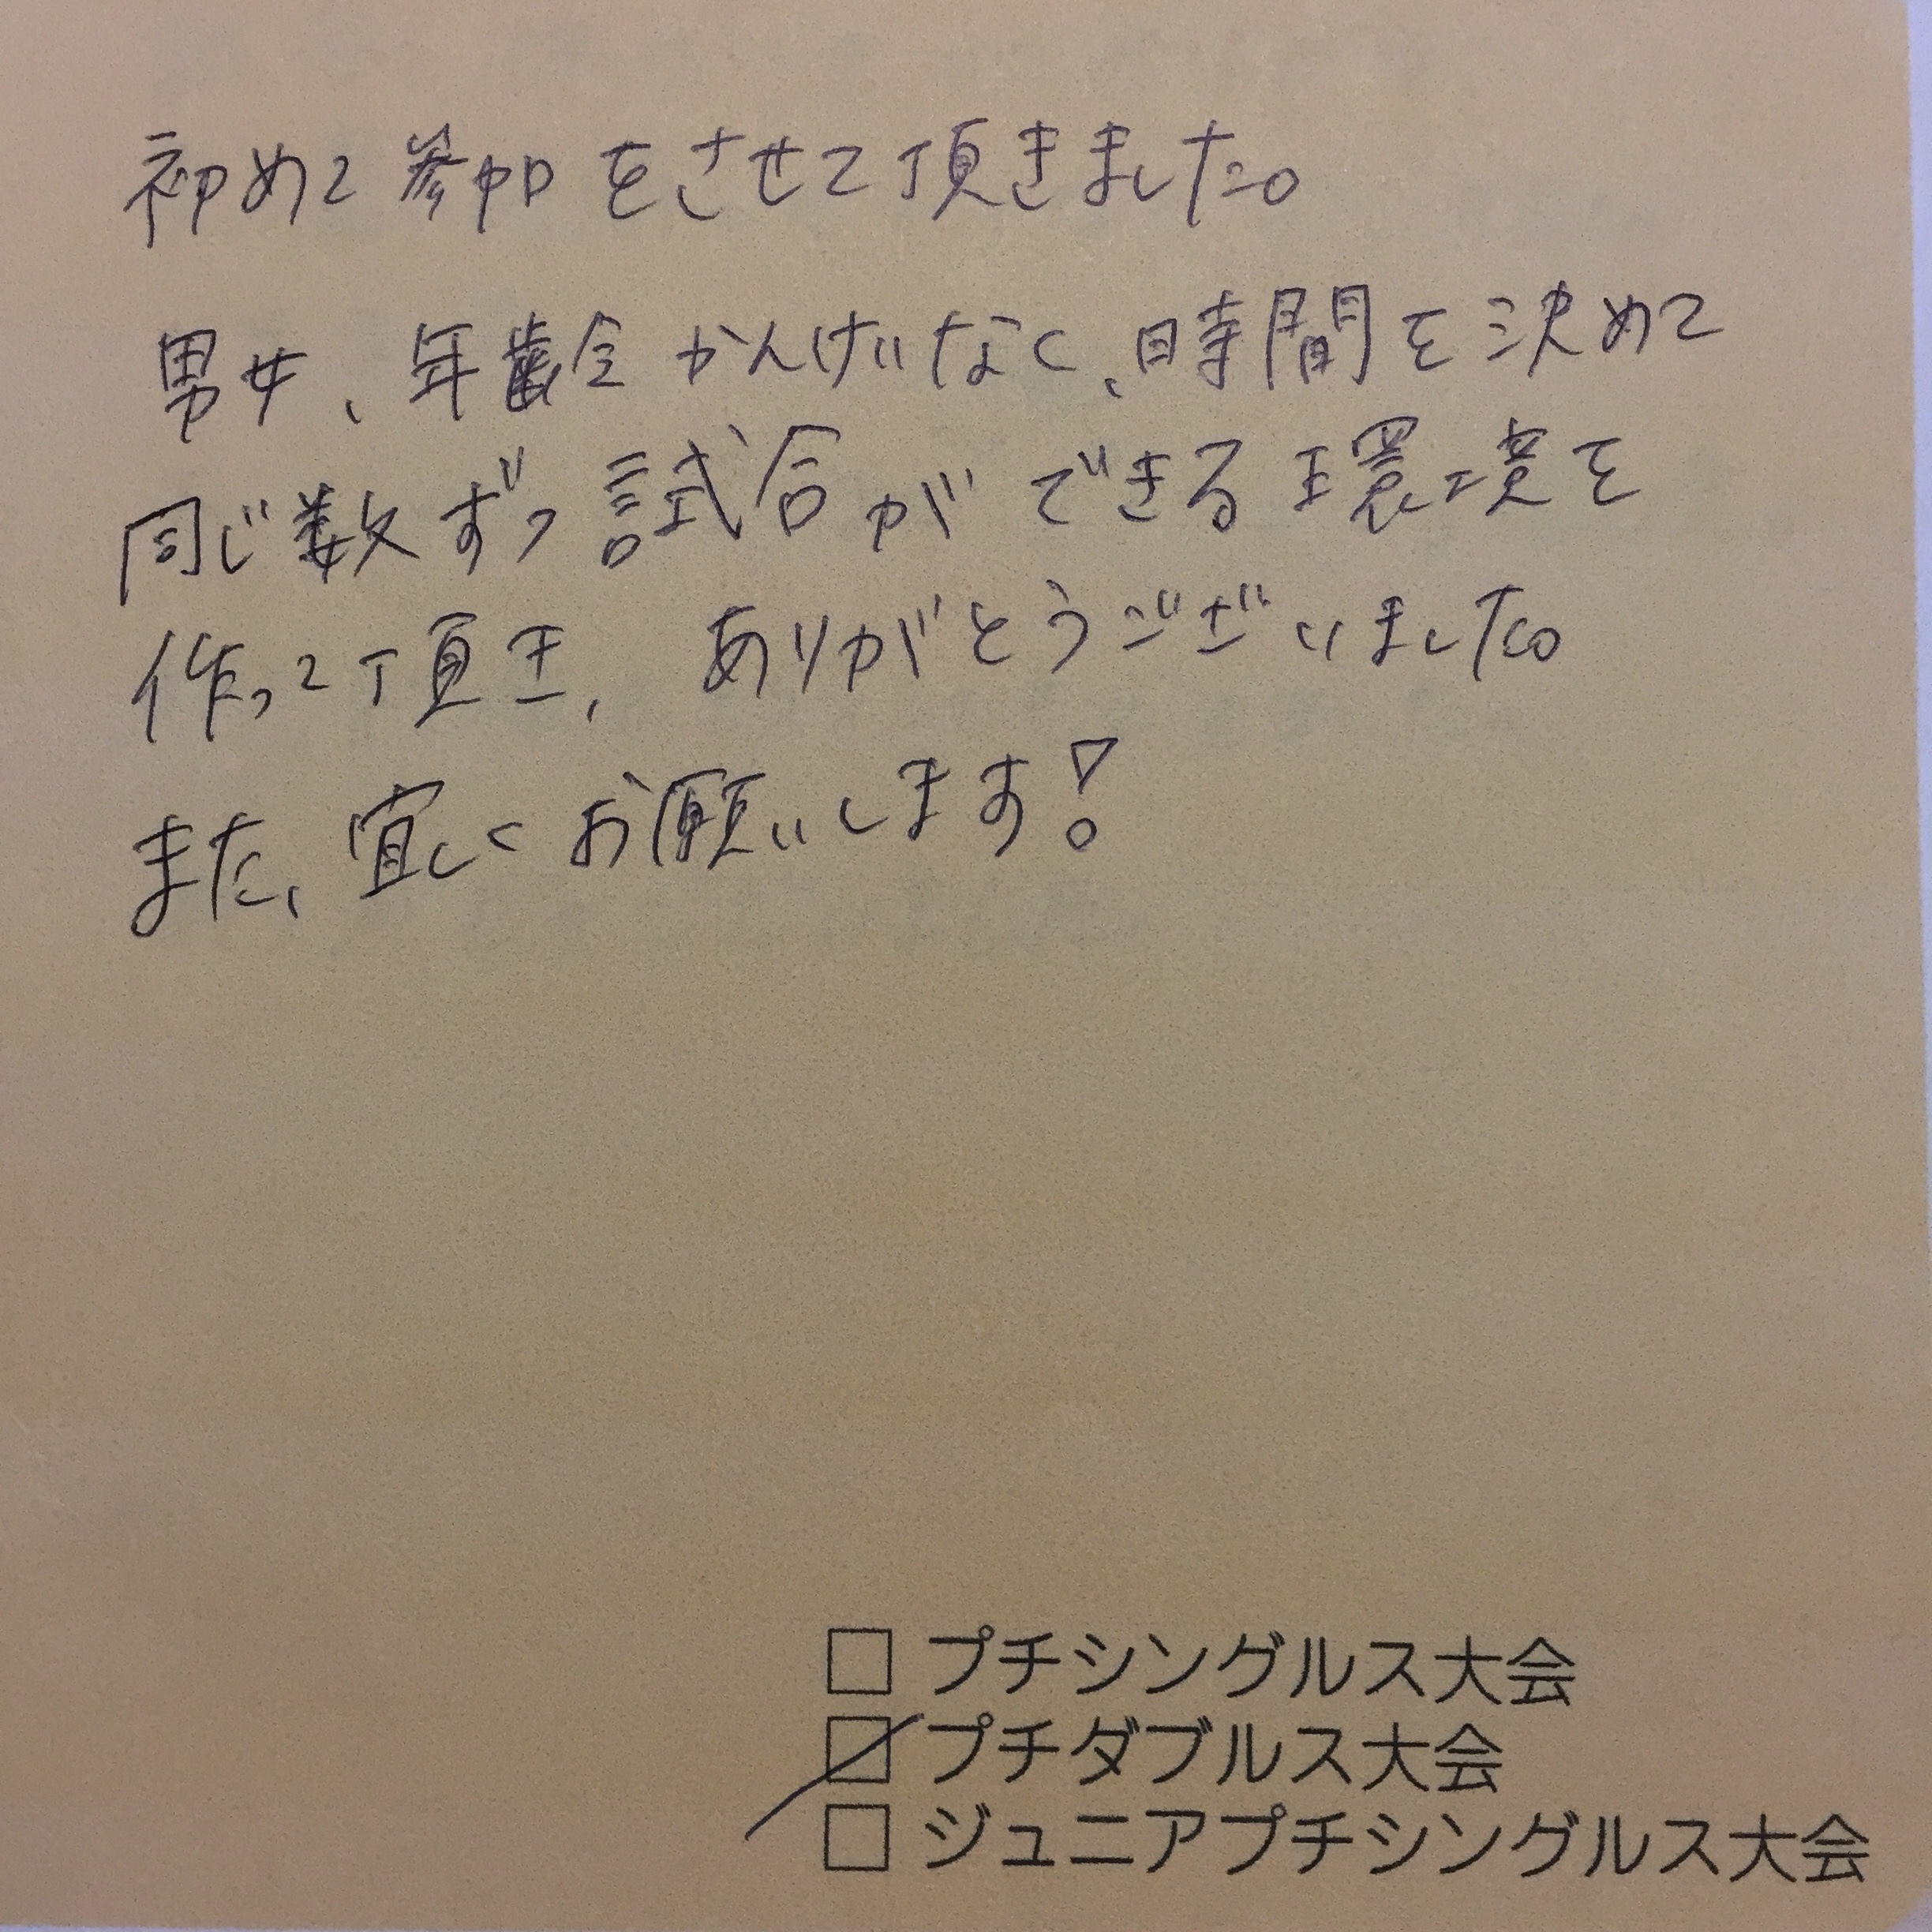 初めて参加をさせて頂きました。
男女、年齢かんけいなく、時間を決めて
同じ数ずつ試合ができる環境を
作って頂き、ありがとうございました。
また、宜しくお願いします!
□ プチシングルス大会
☑ プチダブルス大会
□ ジュニアプチシングルス大会